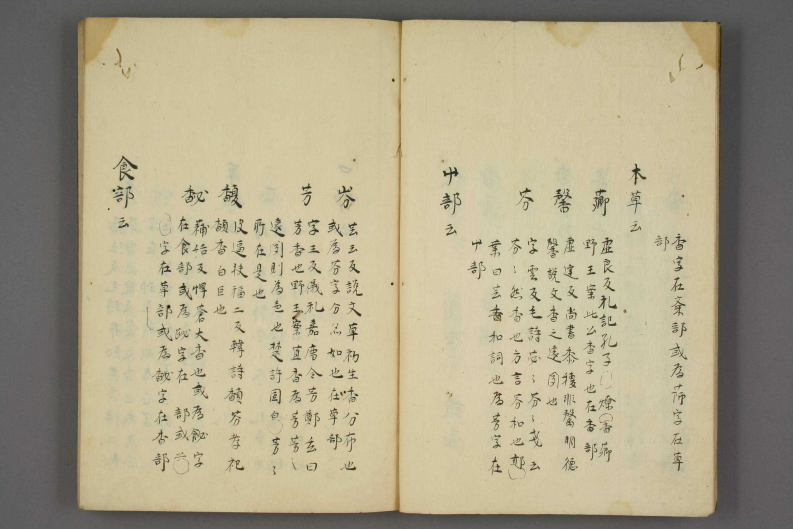 香字在黍部或為薌字在草
部
木草云
薌 虛良反礼記孔子燎羶薌
野王案此公香字也在香部
馨 虛廷反尚書黍稷非馨明德
馨說文香之遠聞也
芬 孚雲反毛詩苾〻芬〻戔云
芬〻然香也方言芬和也郭
葉曰芬香和詞也為芳字在
屮部
屮部云
岕 芸云反說文草初生香分布也
或為芬字分忽如也在草部
芳 孚王反儀礼嘉唐令芳鄭玄曰
芳香也野王案直香為芳芳〻
遠聞則為也楚詩固自芳〻
所在是也
馥 皮逼扶福二反韓詩馥芬孝祀
馥香白皀也
馝 蒲結反埤蒼大香也或為飶字
在食部或為苾字在部或
字在草部或為馝字在香部
食部云